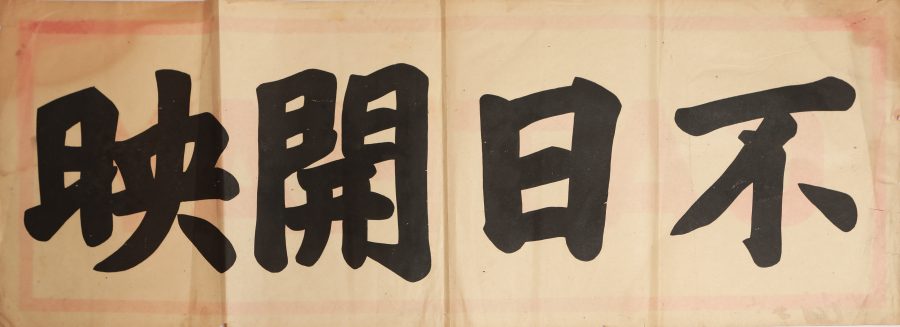 不日開映